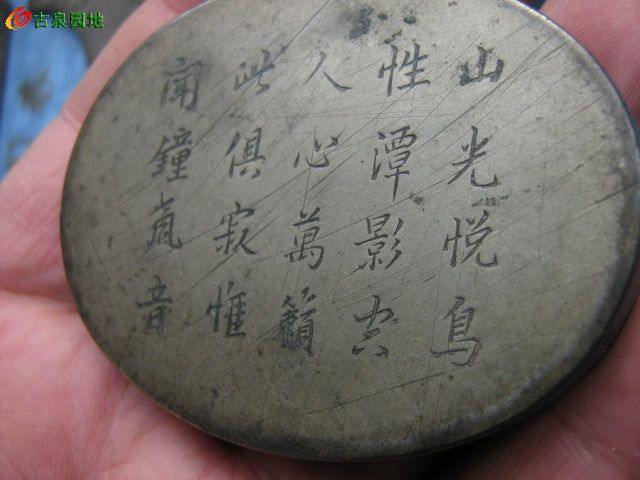 古泉园地
山光悦鳥
性潭影空
人心萬籟
此俱寂惟
聞鐘音